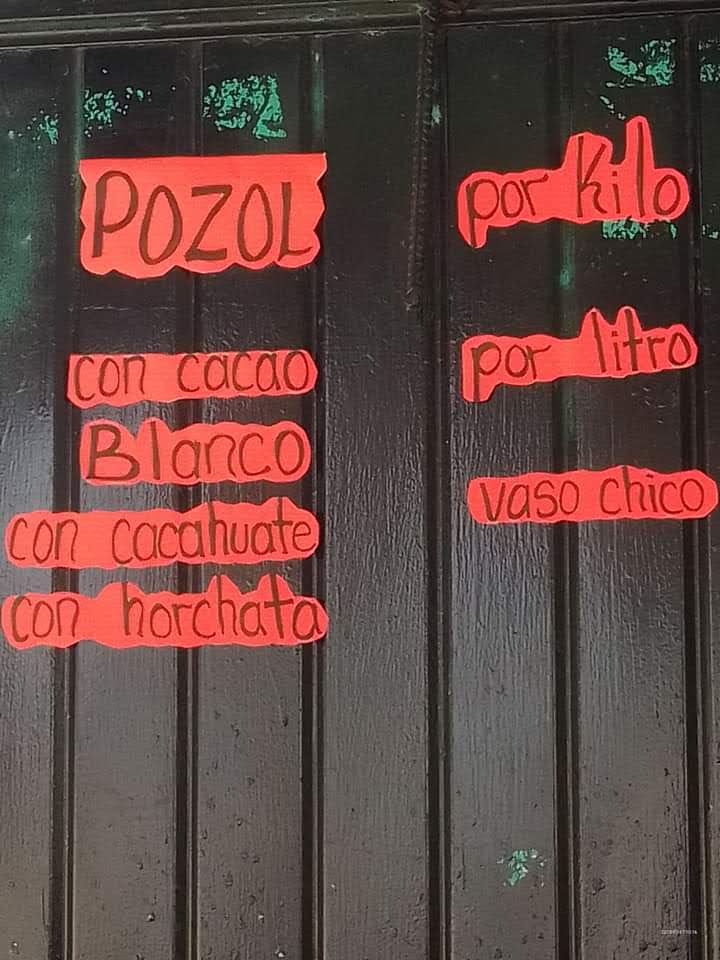 POZOL
con cacao
Blanco
con cacahuate
con horchata
por kilo
por litro
vaso chico